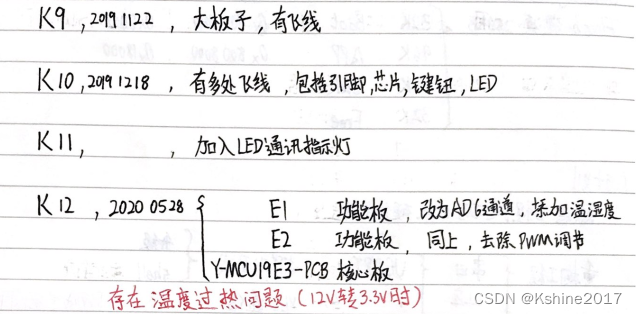 K9, 20191122, 大板子, 有飞线
K10, 20191218, 有多处飞线, 包括引脚, 芯片, 键钮, LED
K11, , 加入LED通讯指示灯
K12, 20200528 { E1 功能板, 改为AD6通道, 添加温湿度
E2 功能板, 同上, 去除PWM调节
Y-MCU19E3-PCB 核心板
存在温度过热问题 (12V转3.3V时)
CSDN @Kshine2017